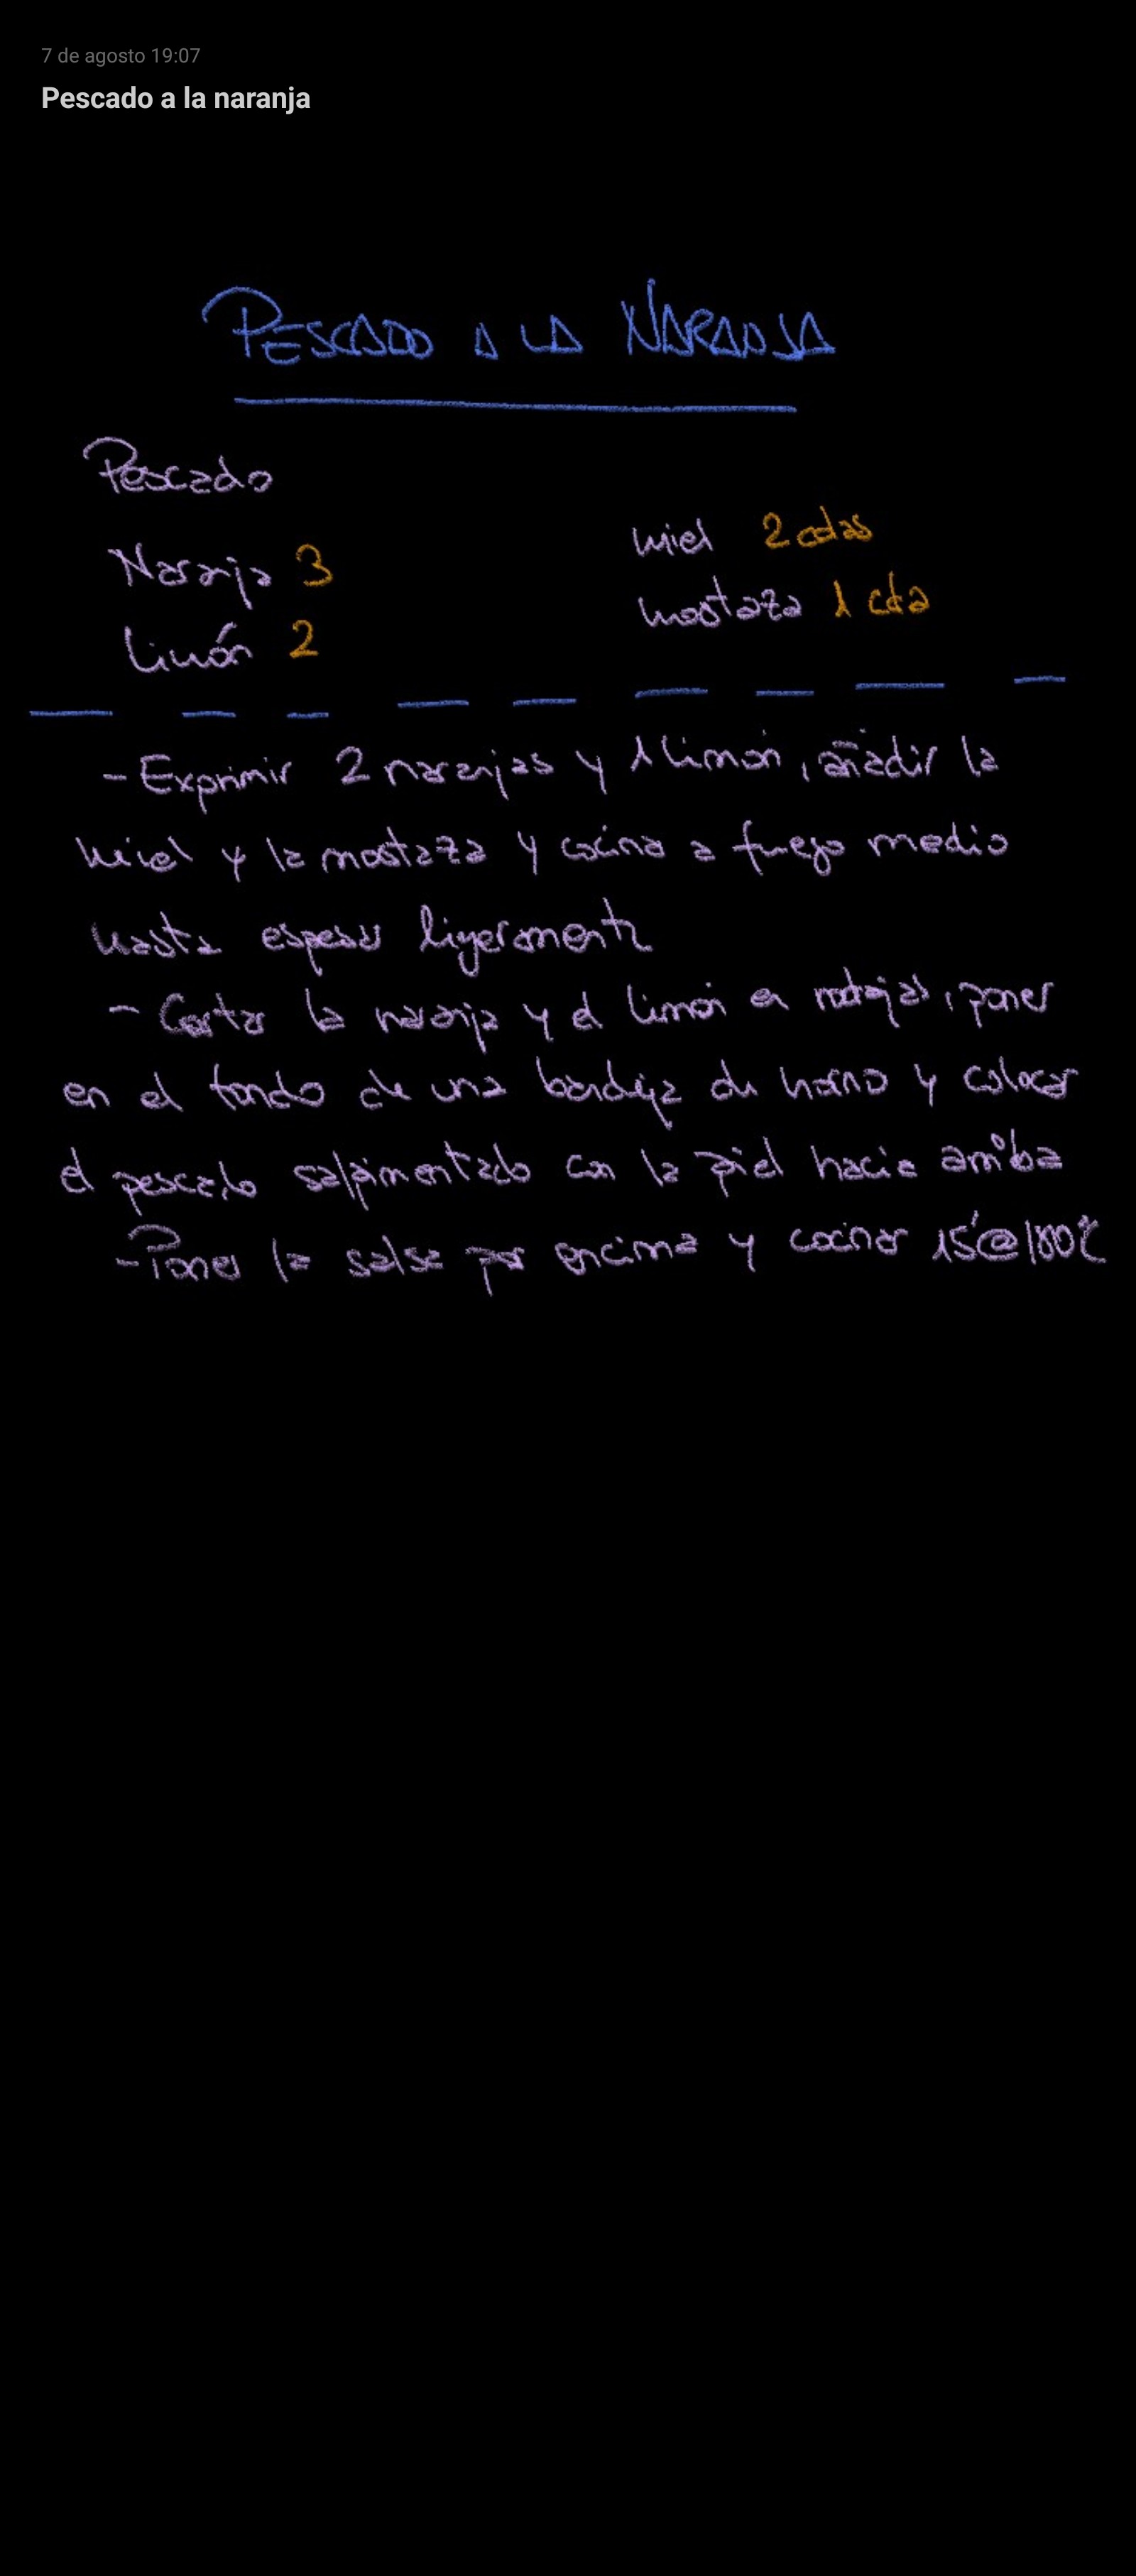 7 de agosto 19:07
Pescado a la naranja
PESCADO A LA NARANJA
Pescado
Naranja 3
Limón 2
miel 2 cdas
mostaza 1 cda
- Exprimir 2 naranjas y 1 limón, añadir la
miel y la mostaza y cocina a fuego medio
hasta espesar ligeramente
- Cortar la naranja y el limón en rodajas, poner
en el fondo de una bandeja de horno y colocar
el pescado salpimentado con la piel hacia arriba
- Poner la salsa por encima y cocinar 15'@180ºC